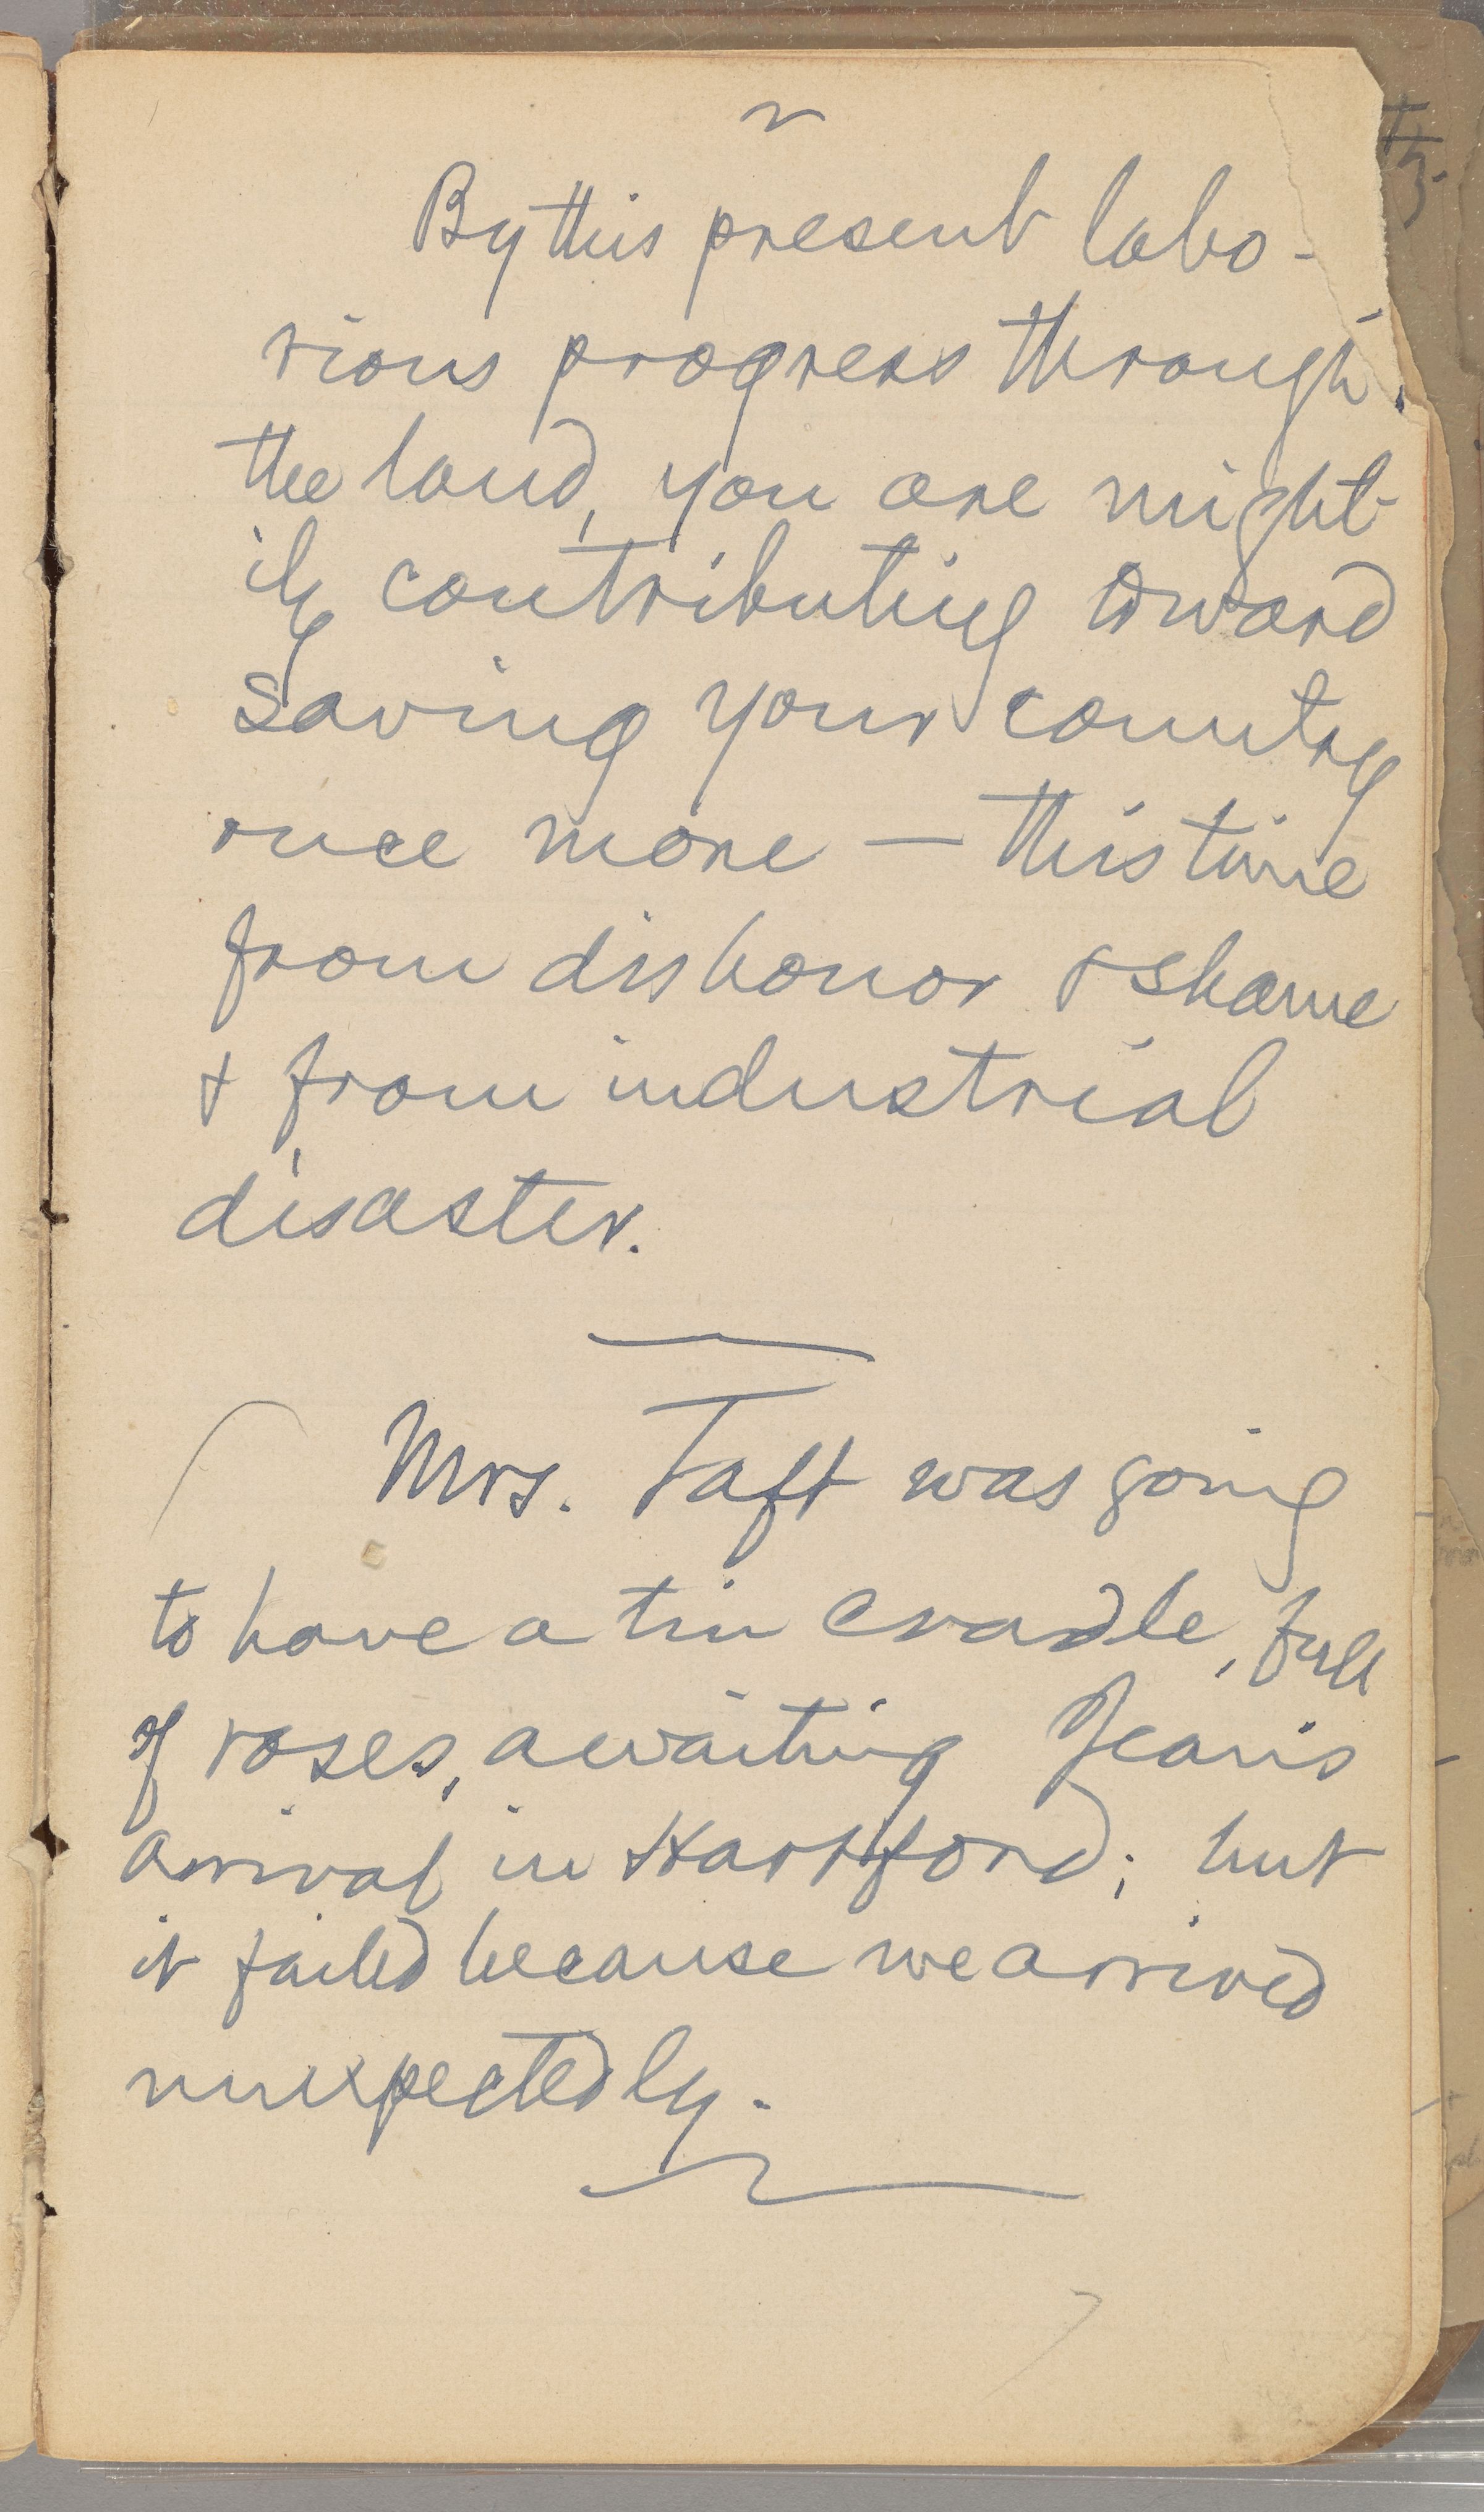 By this present labo-
rious progress through
the land, you are might-
ily contributing toward
saving your country
once more — this time
from dishonor & shame
& from industrial
disaster.
Mrs. Taft was going
to have a tin cradle, full
of roses, awaiting Jean's
arrival in Hartford; but
it failed because we arrived
unexpectedly.